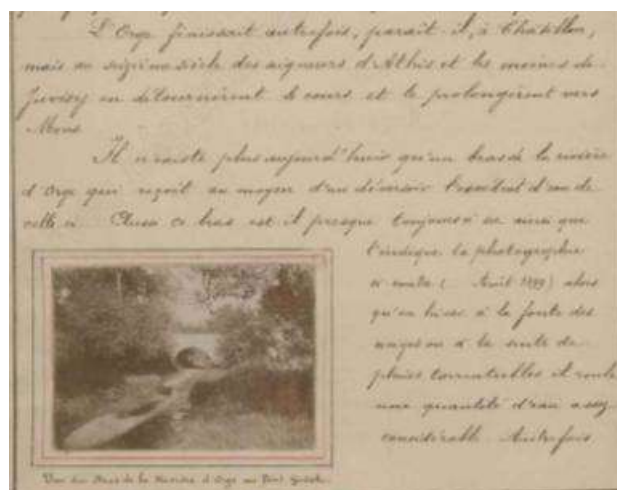 L'Orge finissait autrefois, paraît-il, à Châtillon,
mais au sixième siècle des seigneurs d'Athis et les moines de
Juvisy en détournèrent le cours et le prolongèrent vers
Mons.
Il n'existe plus aujourd'hui qu'un bras de la rivière
d'Orge qui reçoit au moyen d'un déversoir l'excédent d'eau de
celle-ci. Aussi ce bras est-il presque toujours à sec ainsi que
l'indique la photographie
ci-contre (Août 1899) alors
qu'en hiver à la fonte des
neiges ou à la suite de
pluies torrentielles il roule
une quantité d'eau assez
considérable. Autrefois
Vue du Bras de la Rivière d'Orge au Pont